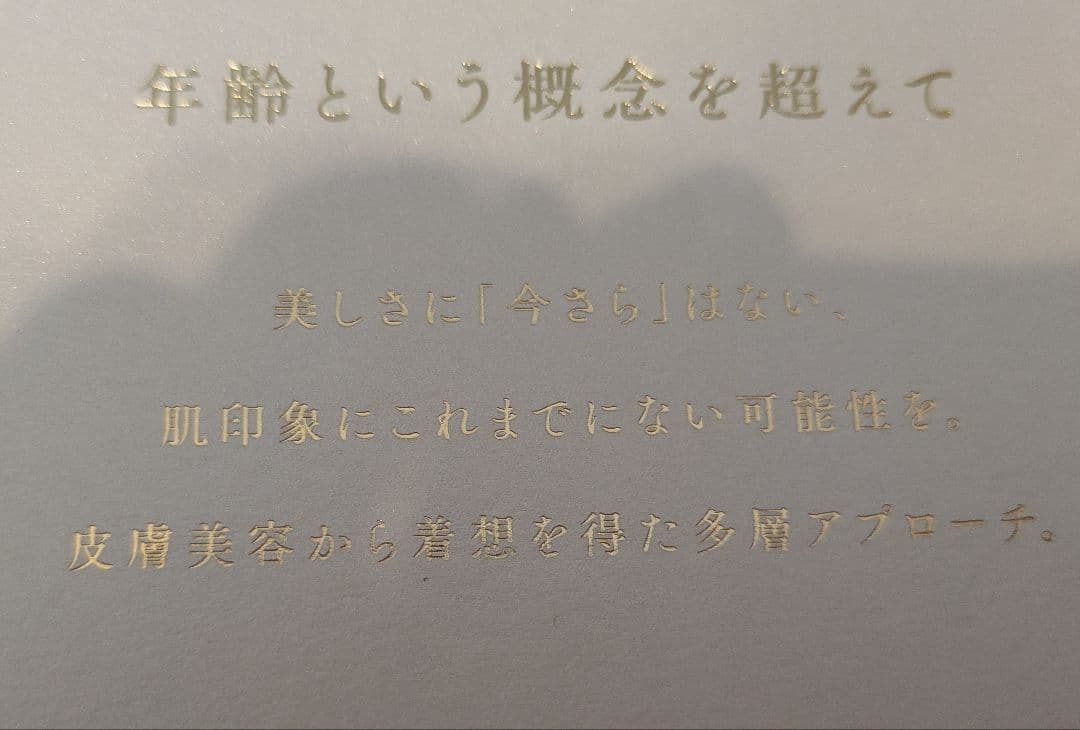 年齢という概念を超えて
美しさに「今さら」はない、
肌印象にこれまでにない可能性を。
皮膚美容から着想を得た多層アプローチ。